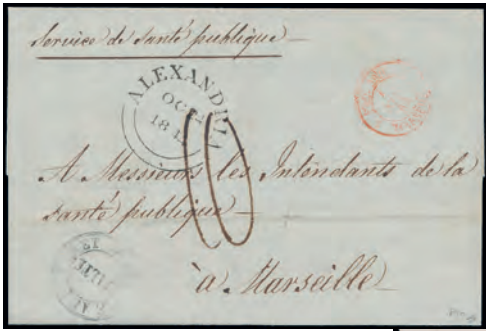 Service de santé publique
ALEXANDRIA
OC
18
10
A Messieurs les Intendants de la
santé publique
à Marseille